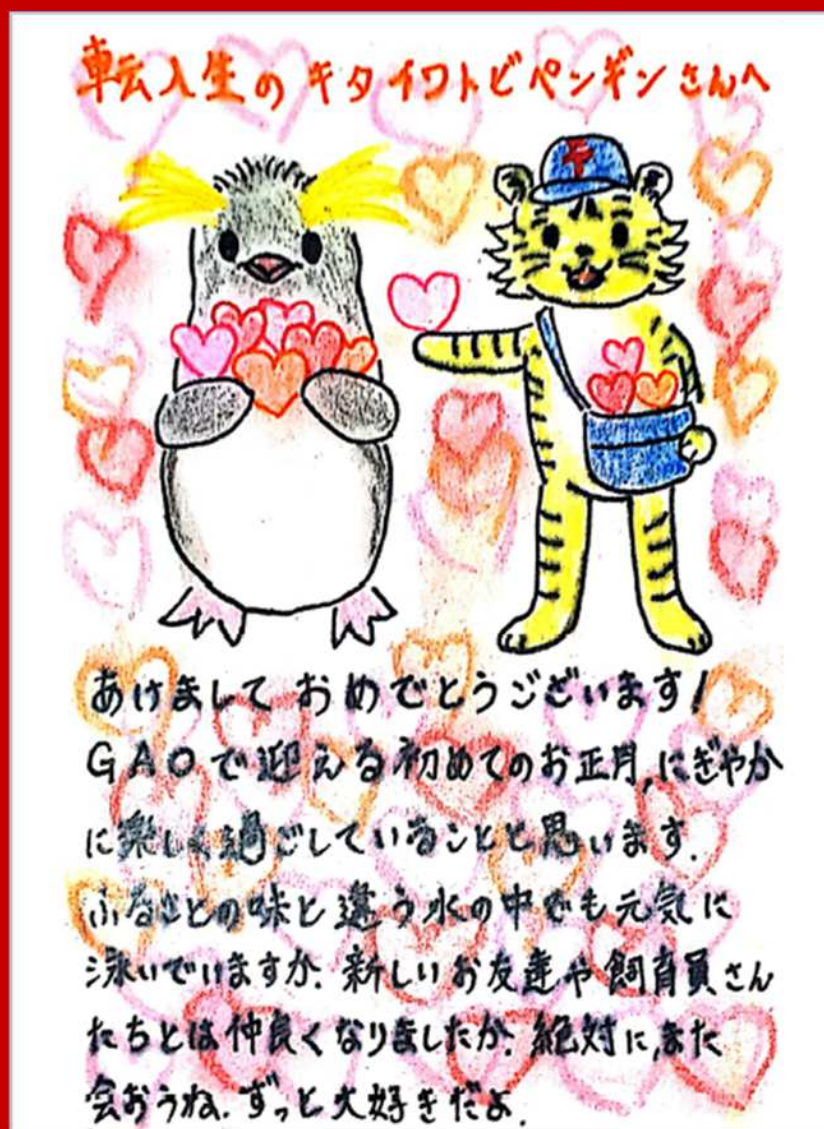 転入生のキタイワトビペンギンさんへ
〒
あけましておめでとうございます!
GAOで迎える初めてのお正月、にぎやか
に楽しく過ごしていることと思います。
ふるさとの味と違う水の中でも元気に
泳いでいますか。新しいお友達や飼育員さん
たちとは仲良くなりましたか。絶対に、また
会おうね。ずっと大好きだよ。